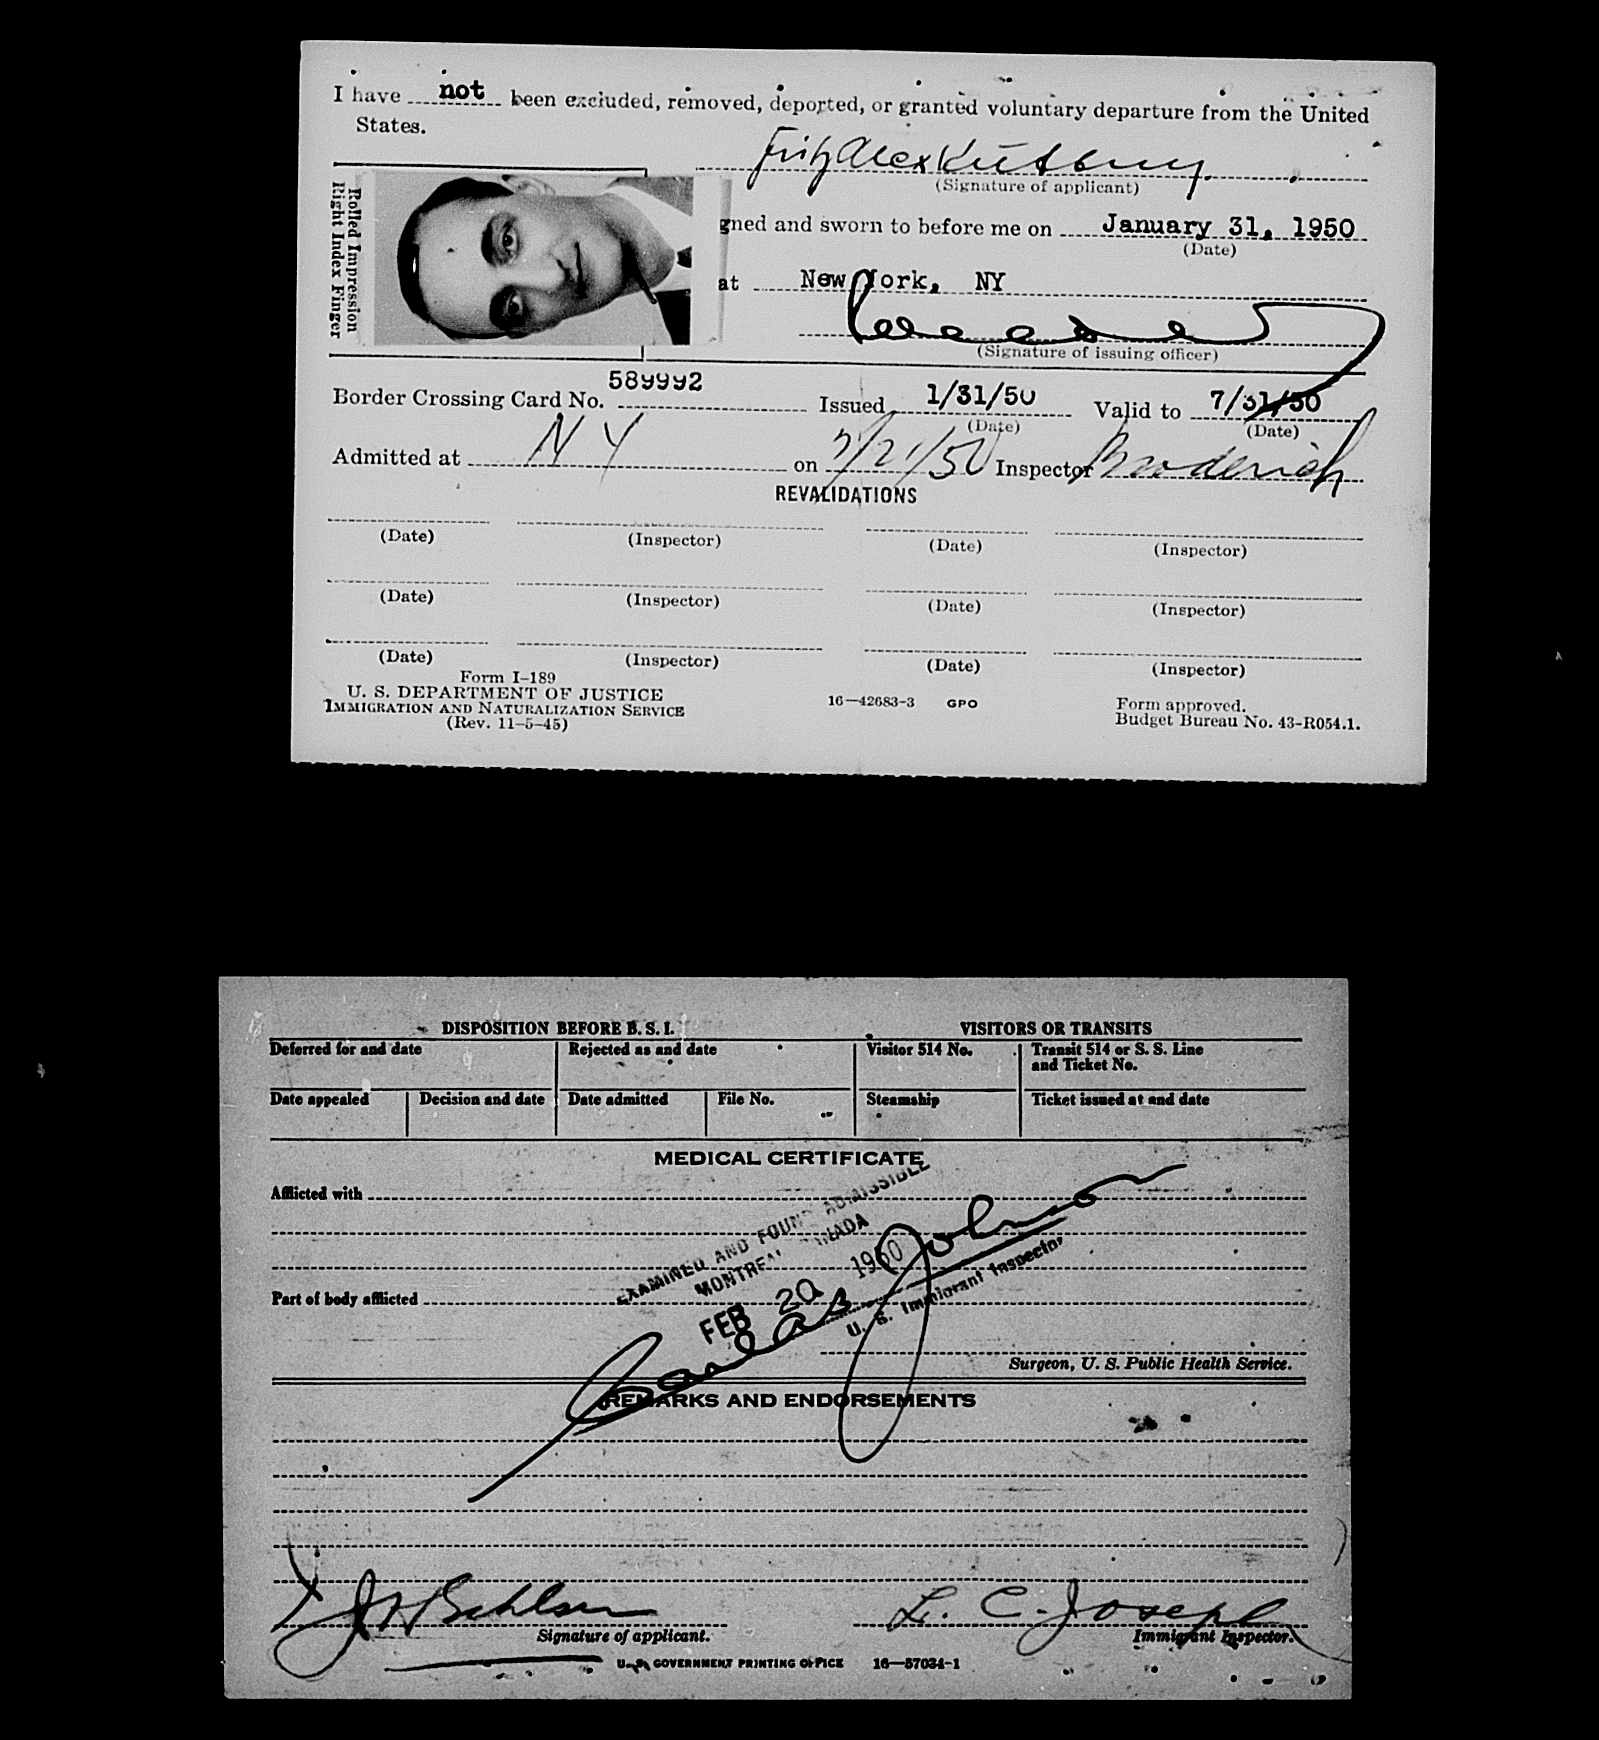 I have not been excluded, removed, deported, or granted voluntary departure from the United
States.
Fritz Alex
(Signature of applicant)
Rolled Impression
Right Index Finger
gned and sworn to before me on January 31, 1950
(Date)
at New York, NY
(Signature of issuing officer)
Border Crossing Card No. 589992 Issued 1/31/50 Valid to 7/31/50
(Date) (Date)
Admitted at NY on /21/50 Inspector Broderick
REVALIDATIONS
(Date) (Inspector) (Date) (Inspector)
(Date) (Inspector) (Date) (Inspector)
(Date) (Inspector) (Date) (Inspector)
Form I-189
U. S. DEPARTMENT OF JUSTICE
IMMIGRATION AND NATURALIZATION SERVICE
(Rev. 11-5-45)
16—42683-3 GPO
Form approved.
Budget Bureau No. 43-R054.1.
DISPOSITION BEFORE B. S. I. VISITORS OR TRANSITS
Deferred for and date Rejected as and date Visitor 514 No. Transit 514 or S. S. Line
and Ticket No.
Date appealed Decision and date Date admitted File No. Steamship Ticket issued at and date
MEDICAL CERTIFICATE
Afflicted with
EXAMINED AND FOUND ADMISSIBLE
MONTREAL CANADA
FEB 20 1950
Johnson
U. S. Immigrant Inspector
Part of body afflicted
Surgeon, U. S. Public Health Service.
REMARKS AND ENDORSEMENTS
L. C. Joseph
Signature of applicant. Immigrant Inspector.
U. S. GOVERNMENT PRINTING OFFICE 16—57034-1